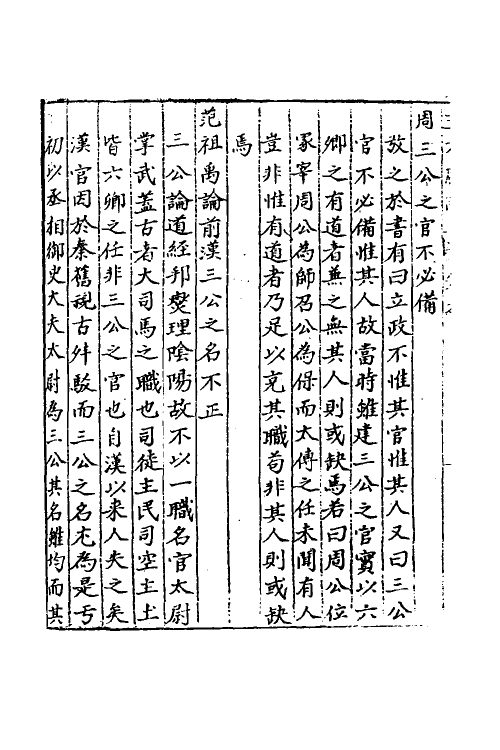 周三公之官不必備
攷之於書有曰立政不惟其官惟其人又曰三公
官不必備惟其人故當時雖建三公之官實以六
卿之有道者兼之無其人則或缺焉若曰周公位
冢宰周公為師召公為保而太傅之任未聞有人
豈非惟有道者乃足以充其職苟非其人則或缺
焉
范祖禹論前漢三公之名不正
三公論道經邦燮理陰陽故不以一職名官太尉
掌武蓋古者大司馬之職也司徒主民司空主土
皆六卿之任非三公之官也自漢以來人失之矣
漢官因於秦舊視古舛駁而三公之名尤為是丐
初以丞相御史大夫太尉為三公其名雖均而其